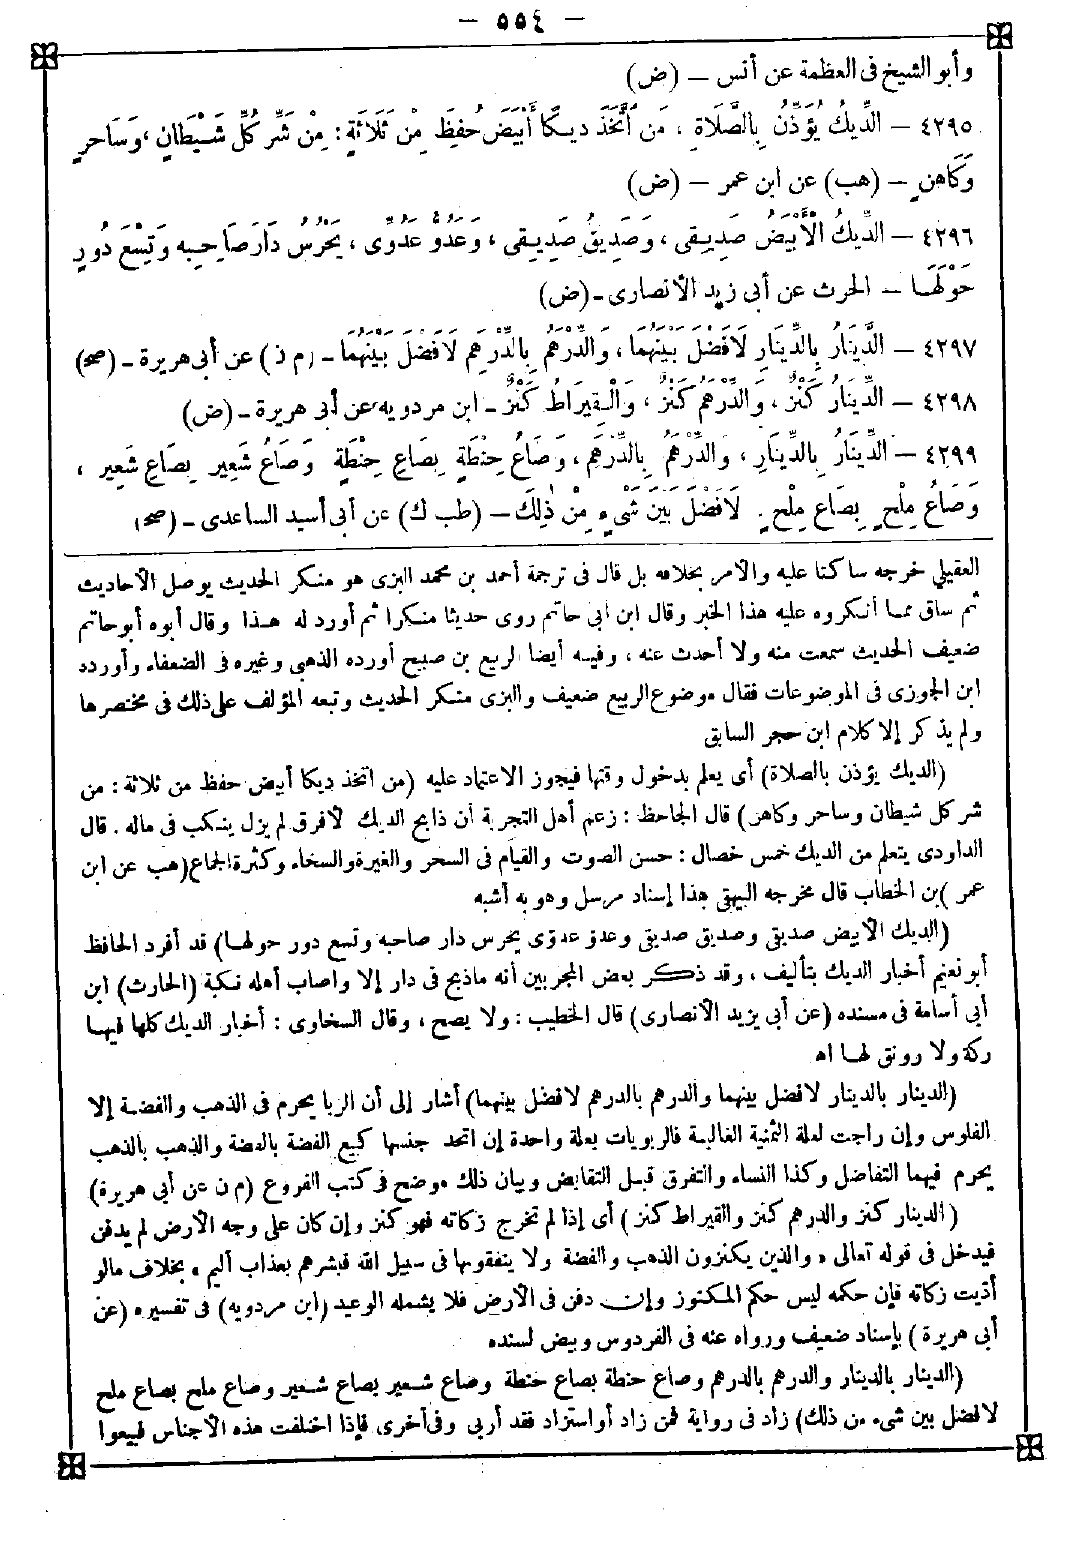 – ٥٥٤ –
وأبو الشيخ فى العظمة عن أنس – (ض)
٤٢٩٥ – الدِّيكُ يُؤَذِّنُ بِالصَّلَاةِ ، مَنِ اتَّخَذَ دِيكًا أَبْيَضَ حُفِظَ مِنْ ثَلَاثَةٍ : مِنْ شَرِّ كُلِّ شَيْطَانٍ ، وَسَاحِرٍ
وَكَاهِنٍ – (هب) عن ابن عمر – (ض)
٤٢٩٦ – الدِّيكُ الْأَبْيَضُ صَدِيقِى ، وَصَدِيقُ صَدِيقِى ، وَعَدُوُّ عَدُوِّى ، يَحْرُسُ دَارَ صَاحِبِهِ وَتِسْعَ دُورٍ
حَوْلَهَا – الحرث عن أبى زيد الأنصارى – (ض)
٤٢٩٧ – الدِّينَارُ بِالدِّينَارِ لَا فَضْلَ بَيْنَهُمَا ، وَالدِّرْهَمُ بِالدِّرْهَمِ لَا فَضْلَ بَيْنَهُمَا – (م ن) عن أبى هريرة – (صح)
٤٢٩٨ – الدِّينَارُ كَنْزٌ ، وَالدِّرْهَمُ كَنْزٌ ، وَالْقِيرَاطُ كَنْزٌ – ابن مردويه عن أبى هريرة – (ض)
٤٢٩٩ – الدِّينَارُ بِالدِّينَارِ ، وَالدِّرْهَمُ بِالدِّرْهَمِ ، وَصَاعُ حِنْطَةٍ بِصَاعِ حِنْطَةٍ وَصَاعُ شَعِيرٍ بِصَاعِ شَعِيرٍ ،
وَصَاعُ مِلْحٍ بِصَاعِ مِلْحٍ . لَا فَضْلَ بَيْنَ شَىْءٍ مِنْ ذٰلِكَ – (طب ك) عن أبى أسيد الساعدى – (صح)
العقيلى خرجه ساكتا عليه والأمر بخلافه بل قال فى ترجمة أحمد بن محمد البزى هو منكر الحديث يوصل الأحاديث
ثم ساق مما أنكروه عليه هذا الخبر وقال ابن أبى حاتم روى حديثا منكرا ثم أورد له هذا وقال أبوه أبو حاتم
ضعيف الحديث سمعت منه ولا أحدث عنه ، وفيه أيضا الربيع بن صبيح أورده الذهبى وغيره فى الضعفاء وأورده
ابن الجوزى فى الموضوعات فقال موضوع الربيع ضعيف والبزى منكر الحديث وتبعه المؤلف على ذلك فى مختصرها
ولم يذكر إلا كلام ابن حجر السابق
(الديك يؤذن بالصلاة) أى يعلم بدخول وقتها فيجوز الاعتماد عليه (من اتخذ ديكا أبيض حفظ من ثلاثة : من
شر كل شيطان وساحر وكاهن) قال الجاحظ : زعم أهل التجربة أن ذابح الديك الأفرق لم يزل ينكب فى ماله . قال
الداودى يتعلم من الديك خمس خصال : حسن الصوت والقيام فى السحر والغيرة والسخاء وكثرة الجماع (هب عن ابن
عمر) بن الخطاب قال مخرجه البيهقى هذا إسناد مرسل وهو به أشبه
(الديك الأبيض صديقى وصديق صديقى وعدو عدوى يحرس دار صاحبه وتسع دور حولها) قد أفرد الحافظ
أبو نعيم أخبار الديك بتأليف ، وقد ذكر بعض المجربين أنه ماذبح فى دار إلا وأصاب أهله نكبة (الحارث) ابن
أبى أسامة فى مسنده (عن أبى يزيد الأنصارى) قال الخطيب : ولا يصح ، وقال السخاوى : أخبار الديك كلها فيها
ركة ولا رونق لها اه
(الدينار بالدينار لا فضل بينهما والدرهم بالدرهم لا فضل بينهما) أشار إلى أن الربا يحرم فى الذهب والفضة إلا
الفلوس وإن راجت لعلة الثمنية الغالبة فالربويات بعلة واحدة إن اتحد جنسها كبيع الفضة بالفضة والذهب بالذهب
يحرم فيهما التفاضل وكذا النساء والتفرق قبل التقابض وبيان ذلك موضح فى كتب الفروع (م ن عن أبى هريرة)
(الدينار كنز والدرهم كنز والقيراط كنز) أى إذا لم تخرج زكاته فهو كنز وإن كان على وجه الأرض لم يدفن
فيدخل فى قوله تعالى «والذين يكنزون الذهب والفضة ولا ينفقونها فى سبيل الله فبشرهم بعذاب أليم» بخلاف مالو
أديت زكاته فإن حكمه ليس حكم المكنوز وإن دفن فى الأرض فلا يشمله الوعيد (ابن مردويه) فى تفسيره (عن
أبى هريرة) بإسناد ضعيف ورواه عنه فى الفردوس وبيض لسنده
(الدينار بالدينار والدرهم بالدرهم وصاع حنطة بصاع حنطة وصاع شعير بصاع شعير وصاع ملح بصاع ملح
لا فضل بين شىء من ذلك) زاد فى رواية فمن زاد أو استزاد فقد أربى وفى أخرى فإذا اختلفت هذه الأجناس فبيعوا